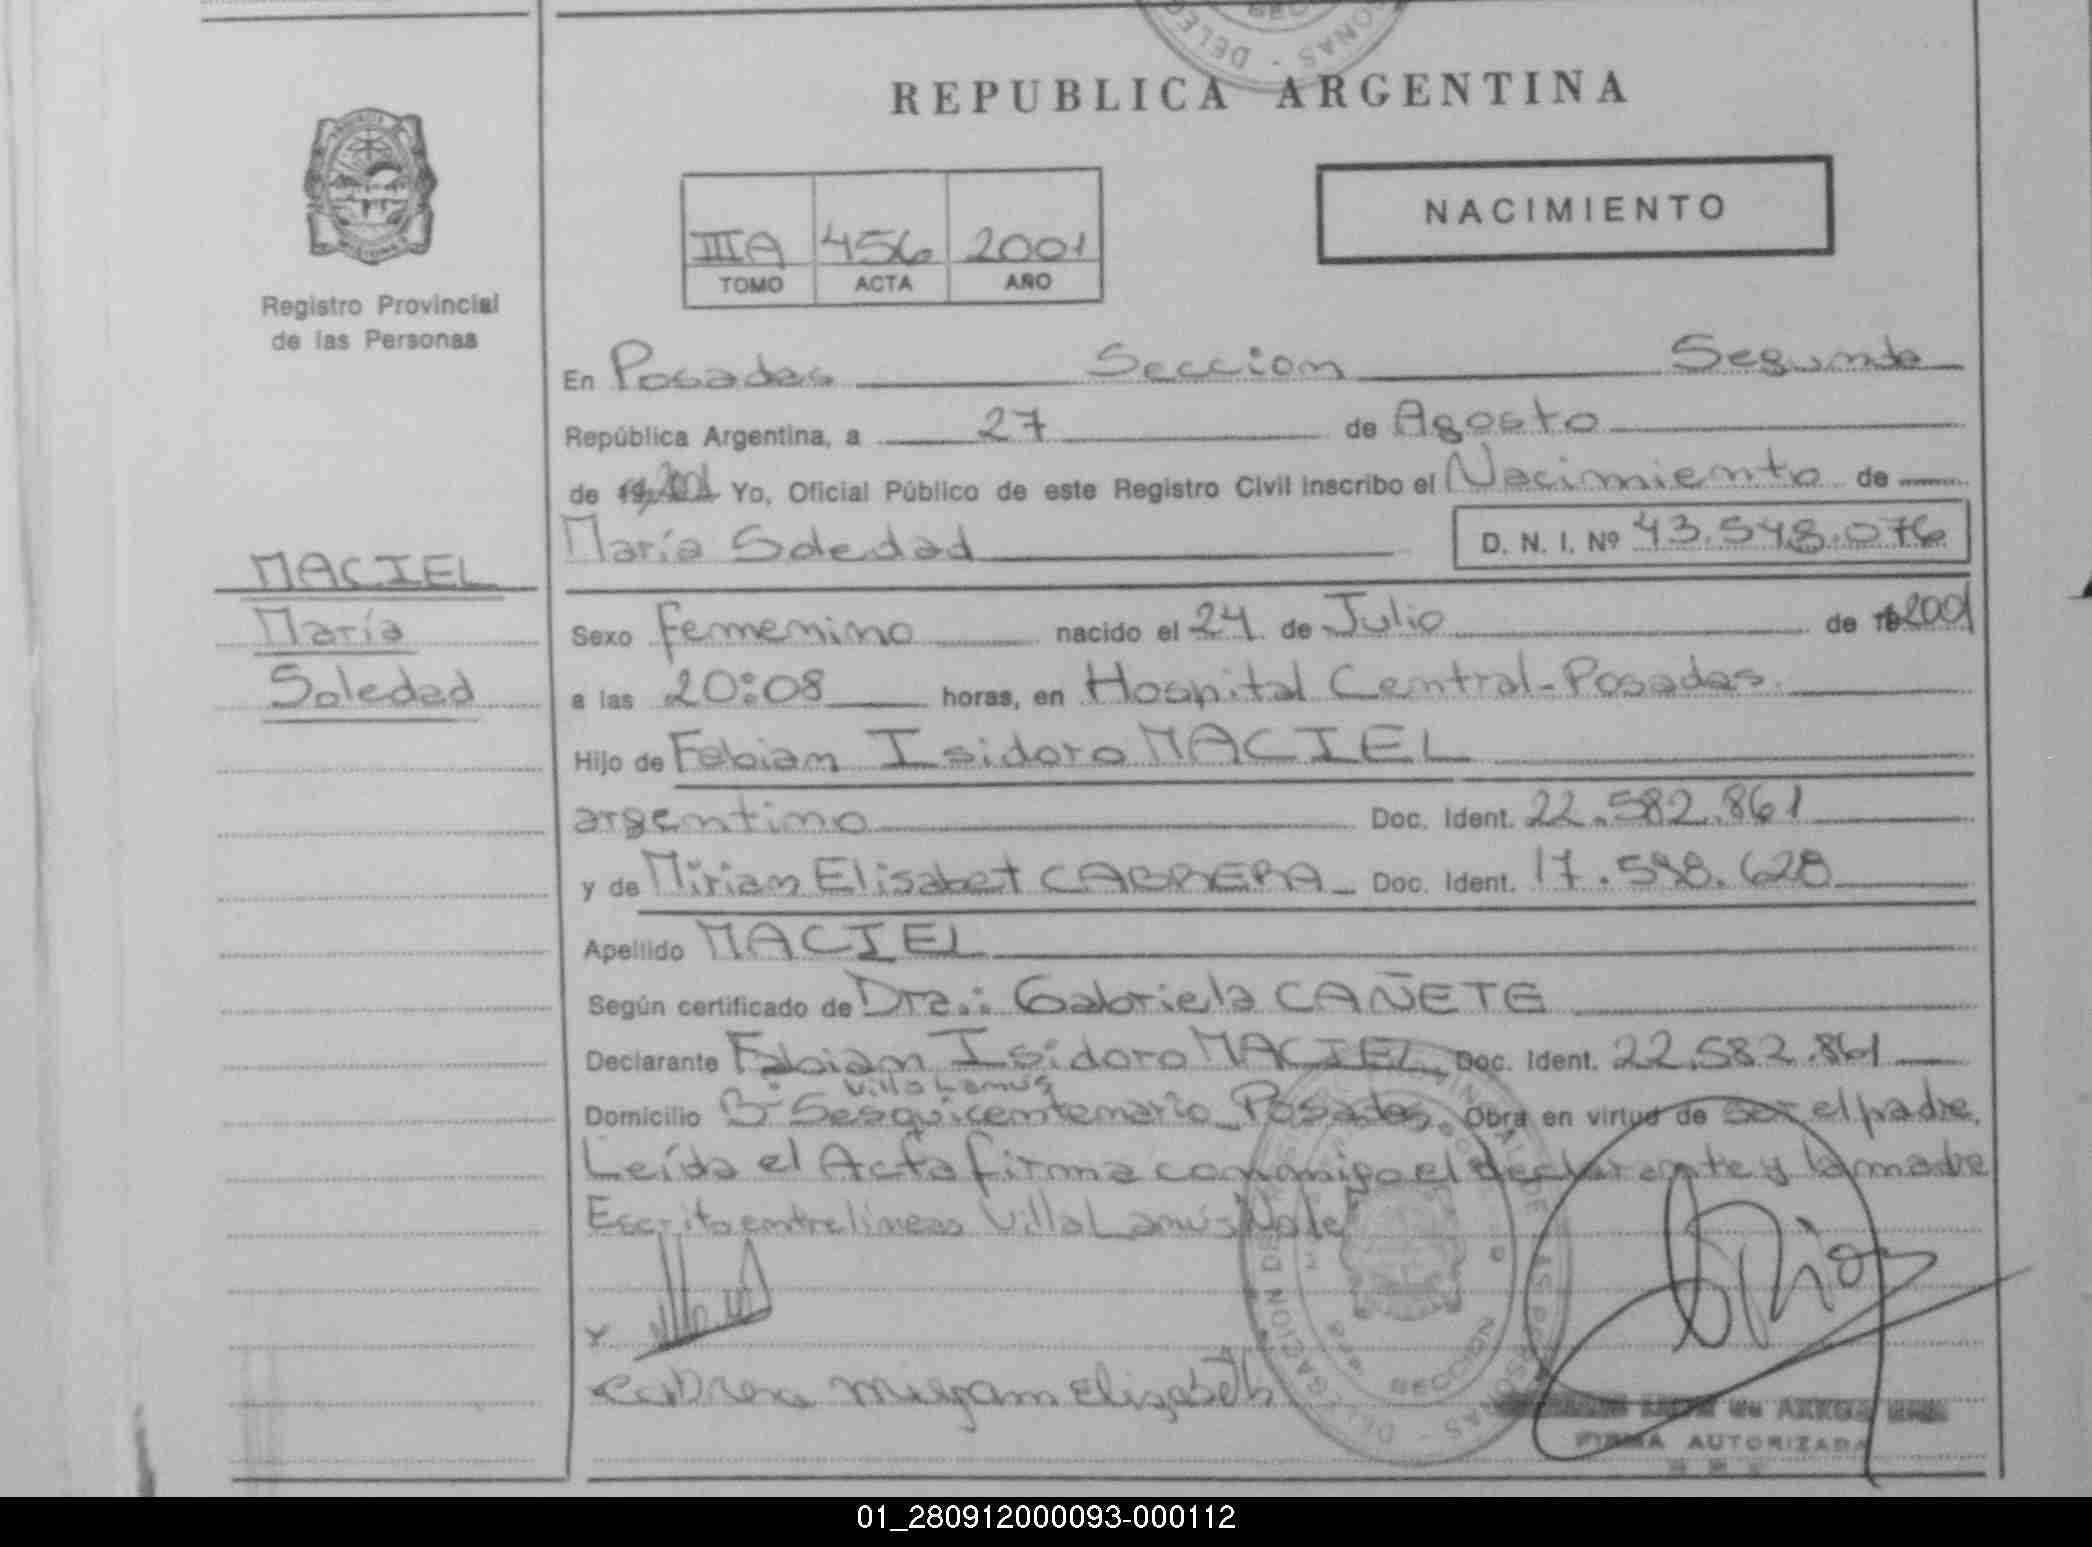 REPUBLICA ARGENTINA
NACIMIENTO
IIIA 456 2001
TOMO ACTA AÑO
Registro Provincial
de las Personas
En Posadas Seccion Segunda
República Argentina, a 27 de Agosto
de 19 2001 Yo, Oficial Público de este Registro Civil inscribo el Nacimiento de
María Soledad D. N. I. Nº 43.548.076
MACIEL
María
Soledad
Sexo femenino nacido el 24 de Julio de 2001
a las 20:08 horas, en Hospital Central-Posadas.
Hijo de Fabian Isidoro MACIEL
argentino Doc. Ident. 22.582.861
y de Mirian Elisabet CABRERA Doc. Ident. 17.598.628
Apellido MACIEL
Según certificado de Dra.: Gabriela CAÑETE
Declarante Fabian Isidoro MACIEL Doc. Ident. 22.582.861
Villa Lanús
Domicilio Bº Sesquicentenario Posadas. Obra en virtud de ser el padre,
Leída el Acta firma conmigo el declarante y la madre
Escrito entrelíneas Villa Lanús Vale
x
Cabrera Miryam Elizabeth
DELEGACION SECCION
FIRMA AUTORIZADA
01_280912000093-000112